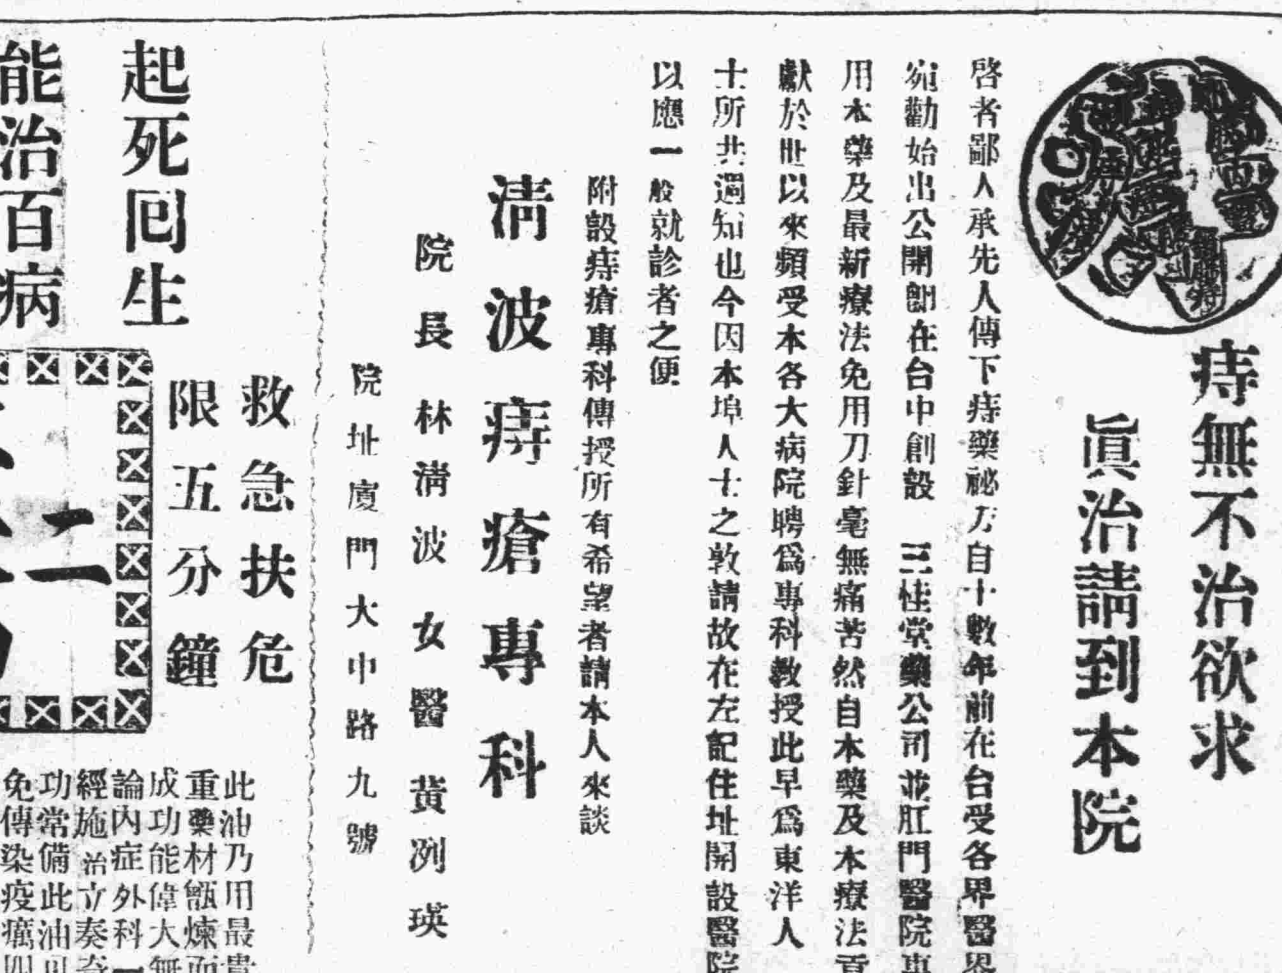 痔無不治欲求
眞治請到本院
啓者鄙人承先人傳下痔藥祕方自十數年前在台受各界醫界
宛勸始出公開劊在台中創設 三桂堂藥公司並肛門醫院專
用本藥及最新療法免用刀針毫無痛苦然自本藥及本療法貢
獻於世以來頻受本各大病院聘爲專科教授此早爲東洋人
士所共週知也今因本埠人士之敦請故在左記住址開設醫院
以應一般就診者之便
附設痔瘡專科傳授所有希望者請本人來談
淸波痔瘡專科
院長林淸波
女醫黃冽瑛
院址廈門大中路九號
起死囘生
能治百病
救急扶危
限五分鐘
二
此油乃用最貴
重藥材甑煉而
成功能偉大無
論內症外科一
經施治立奏奇
功常備此油可
免傳染疫癘四